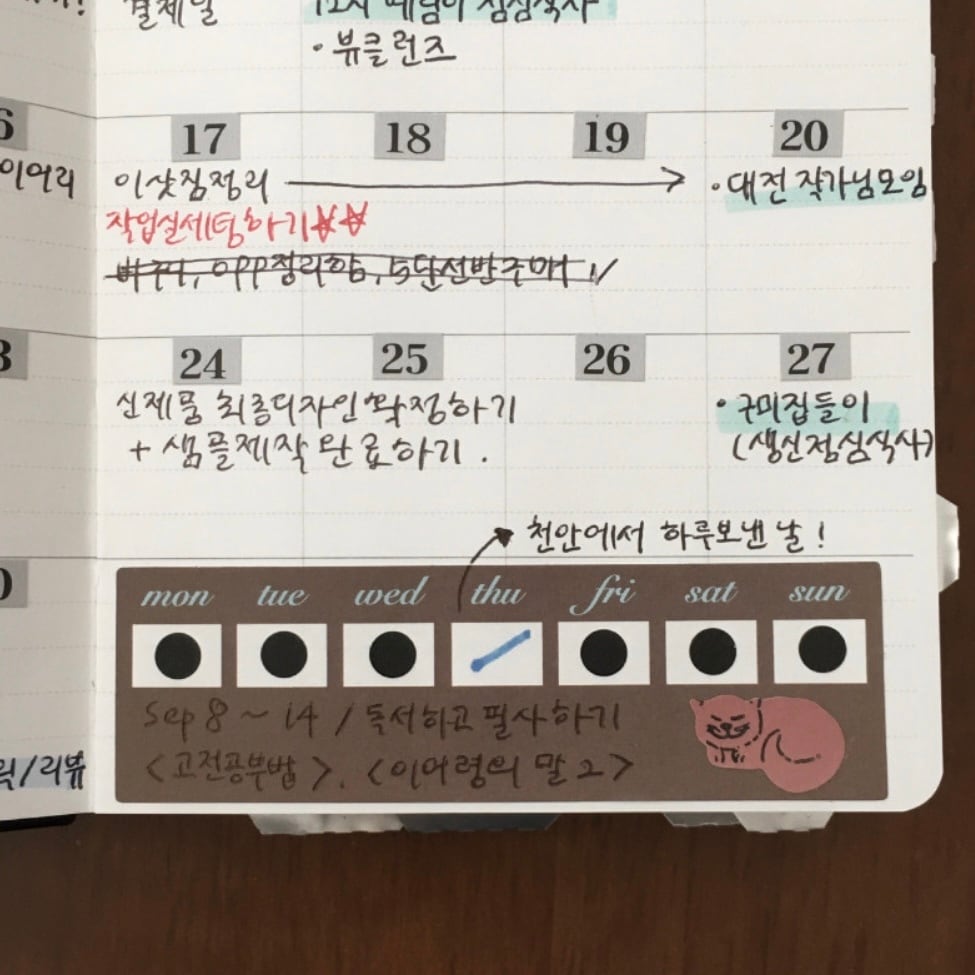 결제일
12시 점심식사
· 뷰클런즈
17 18 19 20
이어리
이삿짐정리 → · 대전 작가님모임
작업실세팅하기☆☆
바구니, opp정리함, 5단선반구매 ✓
24 25 26 27
신제품 최종디자인 확정하기
+ 샘플제작 완료하기.
· 구미집들이
(생신점심식사)
천안에서 하루보낸 날!
mon tue wed thu fri sat sun
Sep 8 ~ 14 / 독서하고 필사하기
<고전공부법>. <이어령의 말 2>
/리뷰